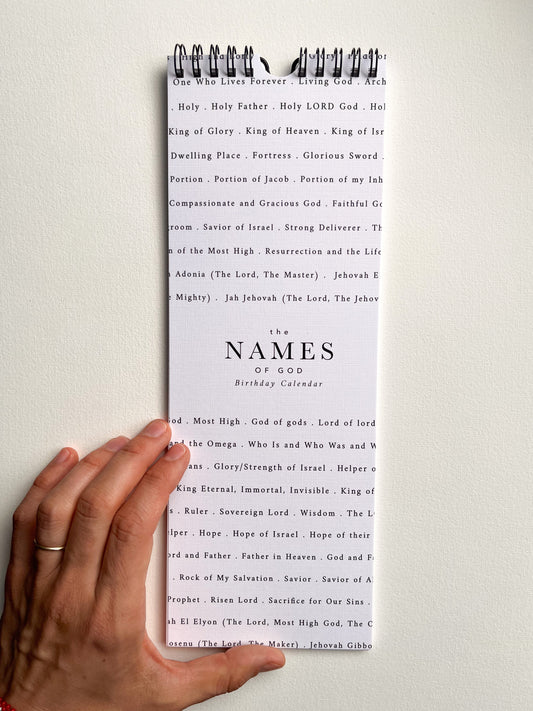 High and Lofty Glory Pride of
One Who Lives Forever . Living God . Arch
. Holy . Holy Father . Holy LORD God . Hol
King of Glory . King of Heaven . King of Isr
Dwelling Place . Fortress . Glorious Sword .
Portion . Portion of Jacob . Portion of my Inh
Compassionate and Gracious God . Faithful Go
groom . Savior of Israel . Strong Deliverer . Th
n of the Most High . Resurrection and the Life
h Adonia (The Lord, The Master) . Jehovah E
e Mighty) . Jah Jehovah (The Lord, The Jehov
the
NAMES
OF GOD
Birthday Calendar
God . Most High . God of gods . Lord of lord
and the Omega . Who Is and Who Was and W
ans . Glory/Strength of Israel . Helper o
King Eternal, Immortal, Invisible . King of
s . Ruler . Sovereign Lord . Wisdom . The L
elper . Hope . Hope of Israel . Hope of their
ord and Father . Father in Heaven . God and Fa
. Rock of My Salvation . Savior . Savior of A
Prophet . Risen Lord . Sacrifice for Our Sins .
ah El Elyon (The Lord, Most High God, The O
osenu (The Lord, The Maker) . Jehovah Gibbo